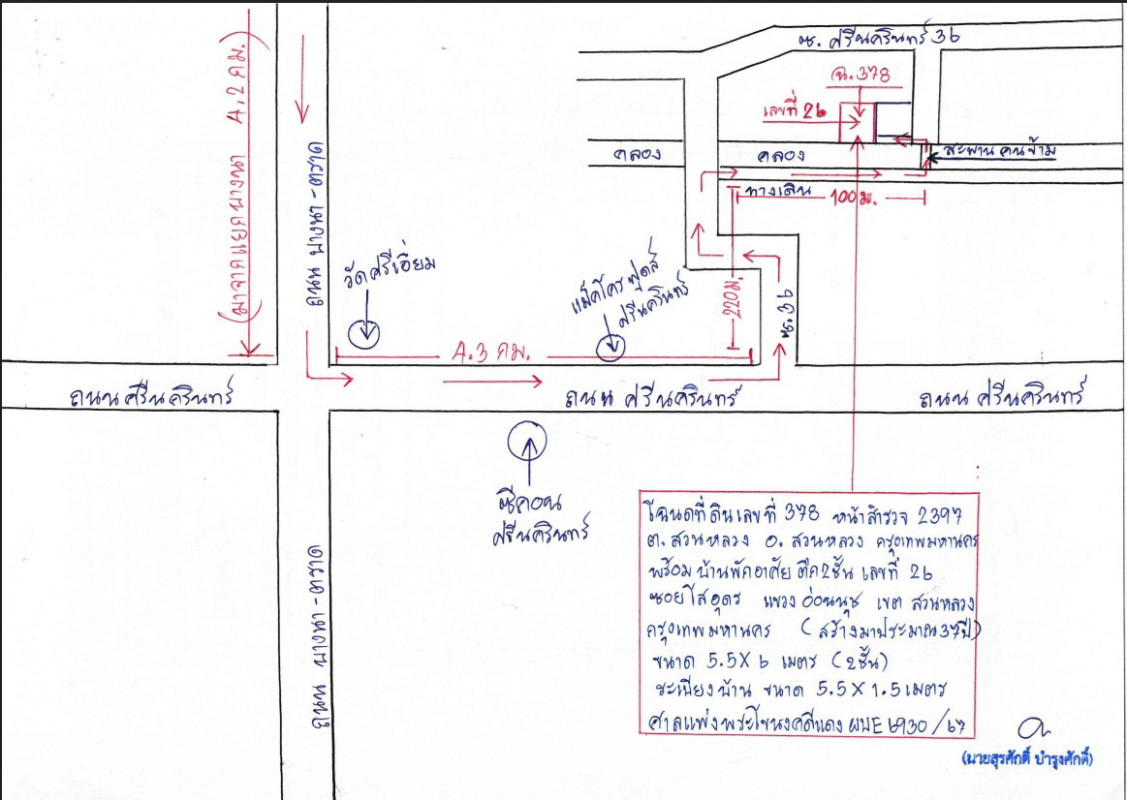 (มาจากแยกบางนา 4.2 กม.)
ถนน บางนา-ตราด
ซ. ศรีนครินทร์ 36
ฉ.378
เลขที่ 26
คลอง
คลอง
สะพานคนข้าม
ทางเดิน
100 ม.
วัดศรีเอี่ยม
แม็คโครฟูดส์
ศรีนครินทร์
220 ม.
ซ.36
4.3 กม.
ถนนศรีนครินทร์
ถนน ศรีนครินทร์
ถนน ศรีนครินทร์
ซีคอน
ศรีนครินทร์
ถนน บางนา-ตราด
โฉนดที่ดินเลขที่ 378 หน้าสำรวจ 2397
ต. สวนหลวง อ. สวนหลวง กรุงเทพมหานคร
พร้อมบ้านพักอาศัย ตึก2ชั้น เลขที่ 26
ซอยโสอุดร แขวง อ่อนนุช เขต สวนหลวง
กรุงเทพมหานคร (สร้างมาประมาณ37ปี)
ขนาด 5.5X6 เมตร (2ชั้น)
ระเบียงบ้าน ขนาด 5.5X1.5 เมตร
ศาลแพ่งพระโขนงคดีแดง ผบE 6930/67
(นายสุรศักดิ์ บำรุงศักดิ์)